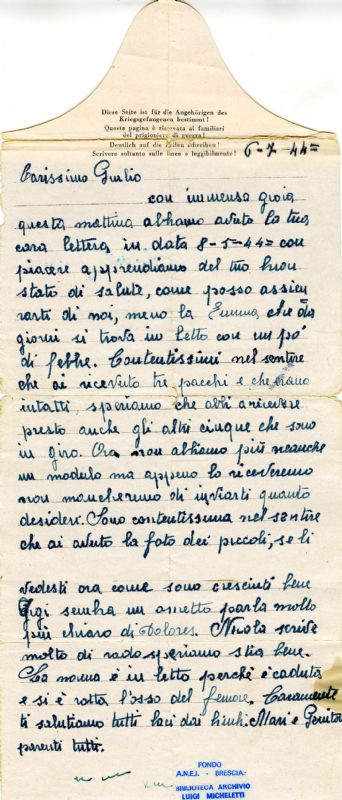 Diese Seite ist für die Angehörigen des
Kriegsgefangenen bestimmt!
Questa pagina è riservata ai familiari
del prigioniero di guerra!
Deutlich auf die Zeilen schreiben!
Scrivere soltanto sulle linee e leggibilmente!
6-7-44=
Carissimo Giulio
con immensa gioia
questa mattina abbiamo avuto la tua
cara lettera in data 8-5-44= con
piacere apprendiamo del tuo buon
stato di salute, come posso assicu
rarti di noi, meno la Emma, che da
giorni si trova in letto con un po'
di febbre. Contentissimi nel sentire
che ai ricevuto tre pacchi e che erano
intatti, speriamo che abbi a ricevere
presto anche gli altri cinque che sono
in giro. Ora non abbiamo più neanche
un modulo ma appena lo riceveremo
non mancheremo di inviarti quanto
desideri. Sono contentissima nel sentire
che ai avuto la foto dei piccoli, se li
vedesti ora come sono cresciuti bene
Gigi sembra un ometto parla molto
più chiaro di Dolores. Nicola scrive
molto di rado speriamo stia bene.
La nonna è in letto perchè è caduta
e si è rotta l'osso del femore. Caramente
ti salutiamo tutti baci dai bimbi. Mari e Genitori
parenti tutti.
FONDO
A.N.E.I. - BRESCIA-
BIBLIOTECA ARCHIVIO
LUIGI MICHELETTI